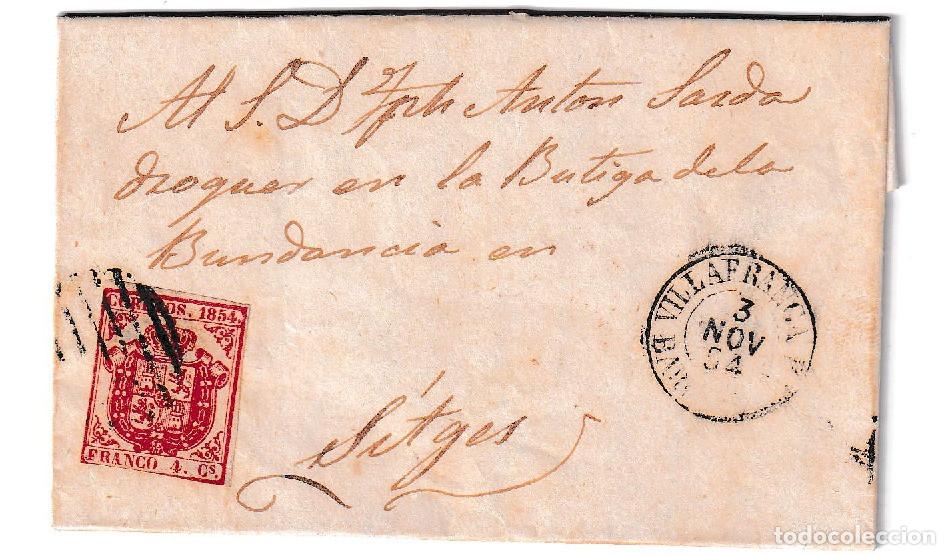 Al S. D. Jph Anton Sarda
droguer en la Butiga de la
Bundancia en
Sitges
CORREOS. 1854.
FRANCO 4. Cs.
VILLAFRANCA
3
NOV
54
todocoleccion